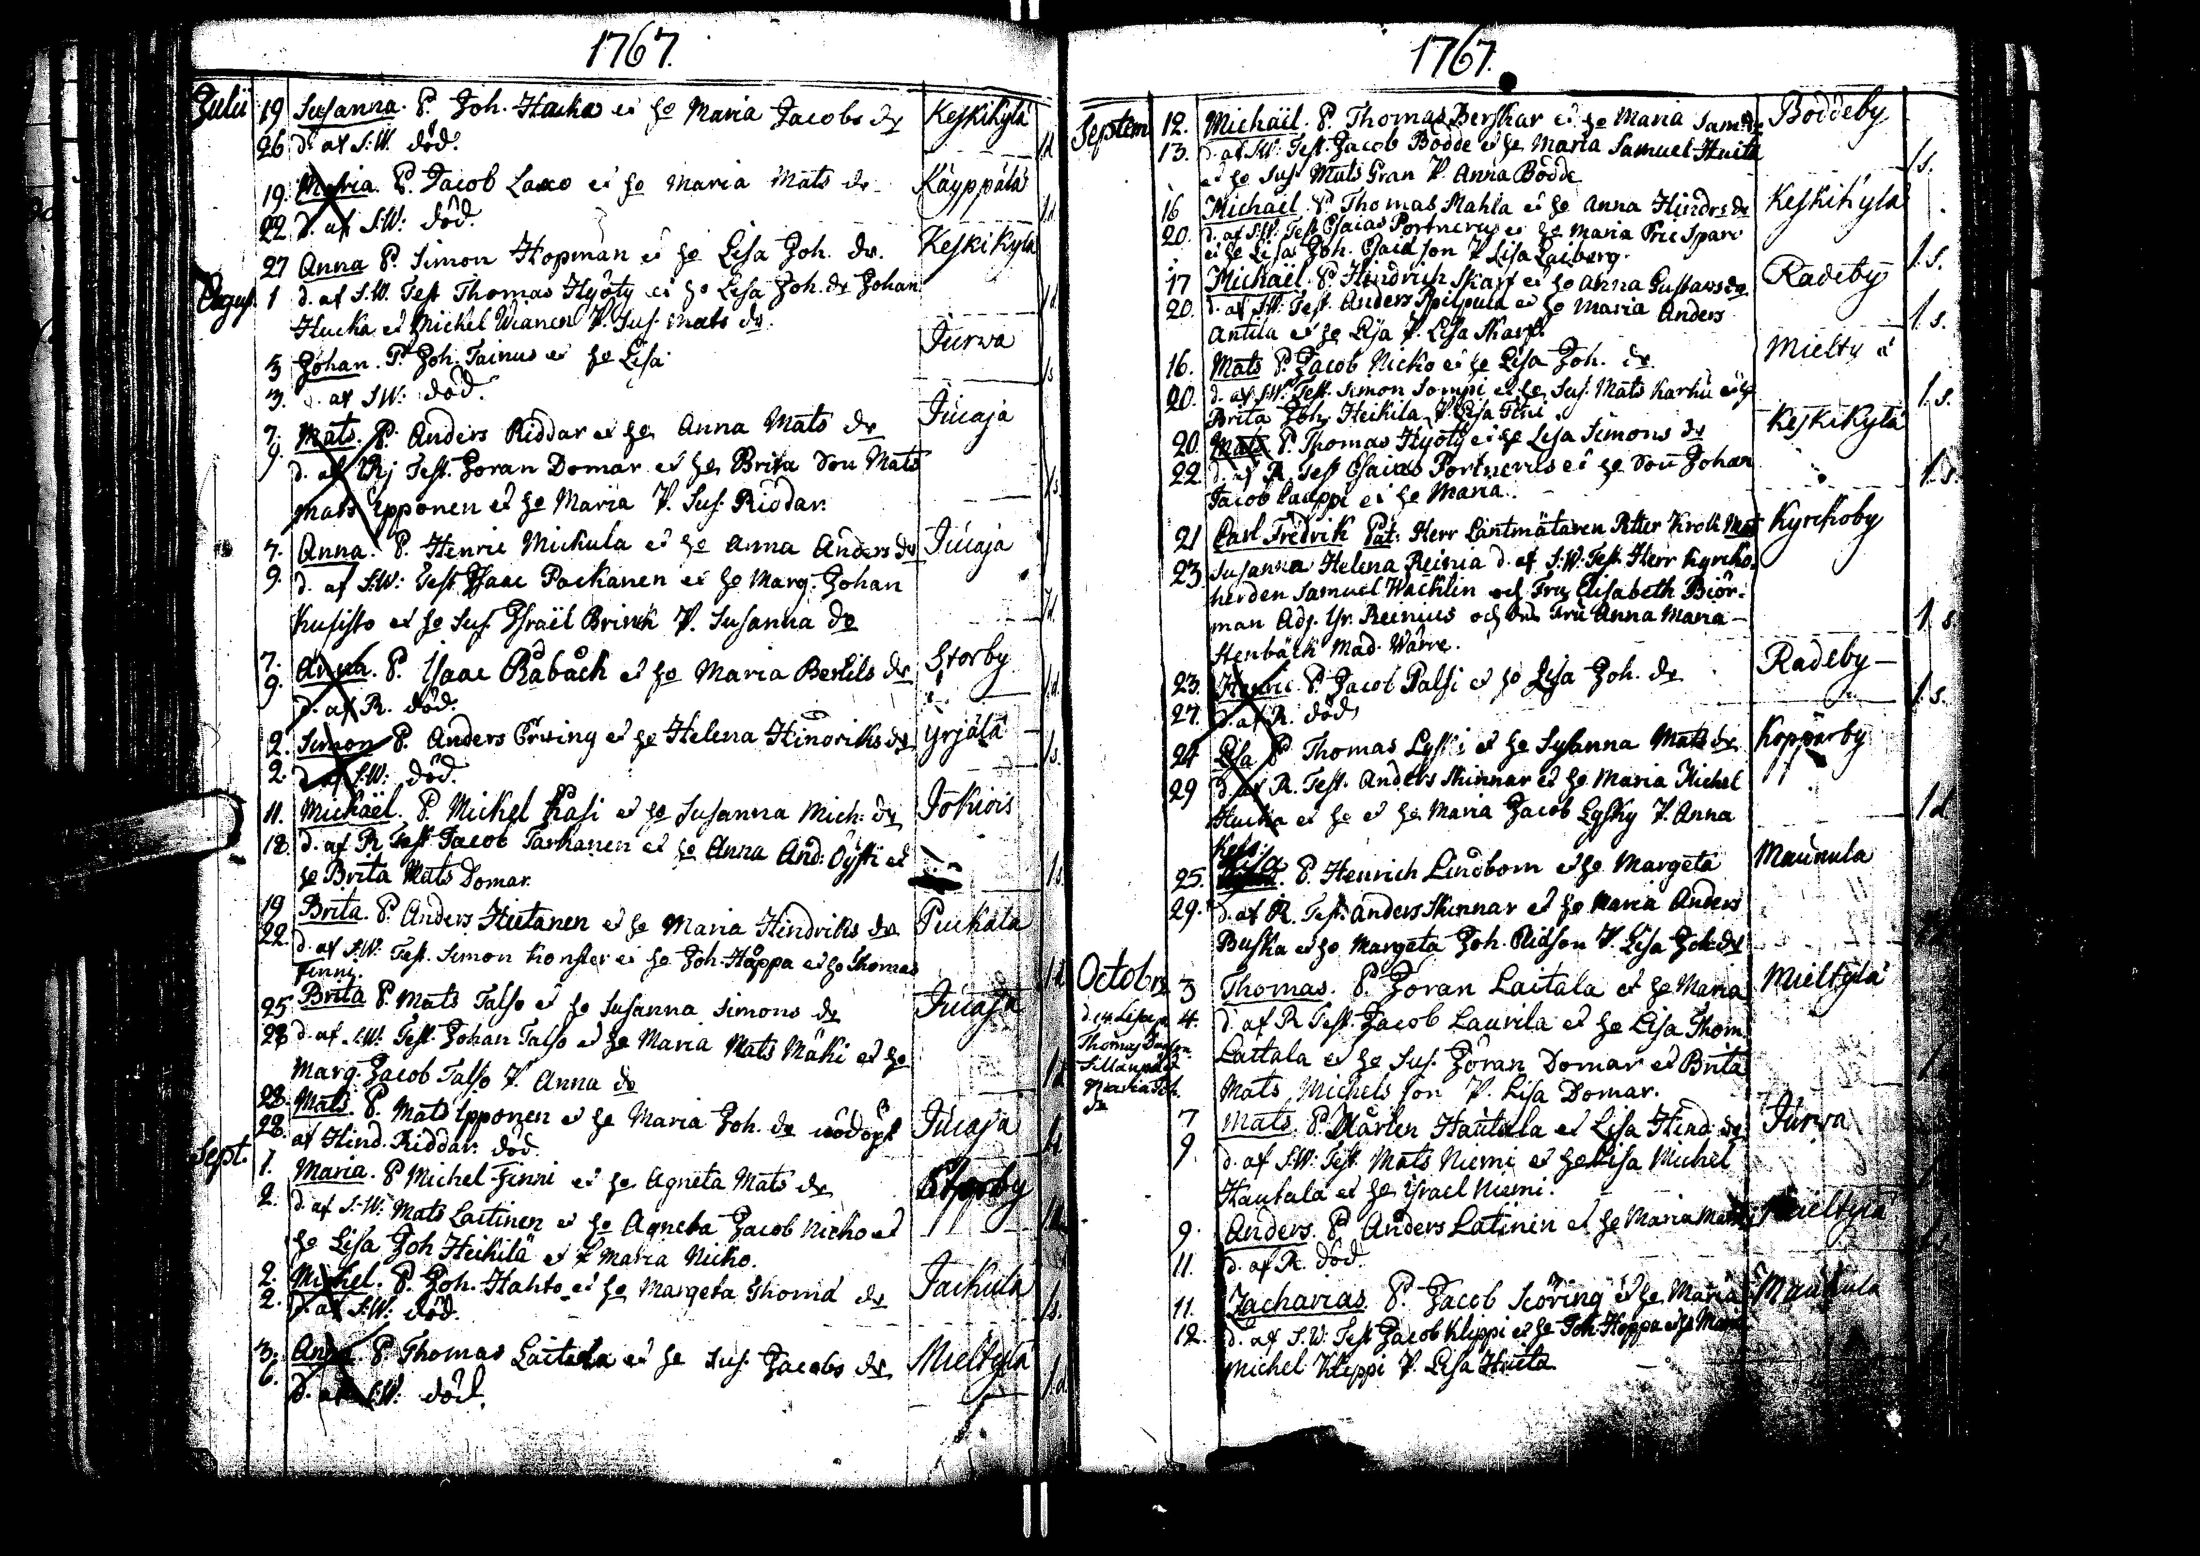 1767.
Julii 19 Susanna. P. Joh. Hucka et h: Maria Jacobs dr Keskikylä
26 d. af S.W. död. 1 d
19. Maria. P. Jacob Laxo et h: Maria Mats dr Käyppälä
22 d. af S.W: död. 1 d
27 Anna P. Simon Hopman et h: Lisa Joh. dr. Keskikylä
August 1 d. af S.W. Test Thomas Hyöty et h: Lisa Joh. dr Johan 1 d
Hucka et Michel Wianen V. Sus. Mats dr.
3 Johan. P. Joh. Tainus et h: Lisa Jurwa
3. d. af S.W: död. 1 s
7. Mats. P. Anders Riddar et h: Anna Mats dr Jucaja
9. d. af Rj Test. Joran Domar et h: Brita Mats 1 s.
Mats Ypponen et h: Maria V. Sus. Riddar.
7. Anna. P. Henric Mickula et h: Anna Anders dr Jucaja
9. d. af S.W: Test. Isaac Packanen et h: Marg: Johan
Kusisto et h: Sus. Israël Brinck V. Susanna dr 1 d
7. Anna. P. Isaac Råback et h: Maria Bertils dr Storby
9. d. af R. död. 1 d
2. Simon P. Anders et h: Helena Hindriks dr Yrjälä
2. d. af S.W: död. 1 s.
11. Michaël. P. Mickel Kasi et h: Susanna Mich: dr Jokiois
12. d. af R. Test Jacob Tarkanen et h: Anna And: Öysti et
h: Brita Mats Domar. 1 s
19 Brita. P. Anders Hietanen et h: Maria Hindriks dr Puckala
22. d. af S.W: Test. Simon Konster et h: Joh. Happa et h: Thomas
Finny. 1 d
25 Brita P. Mats Talso et h: Susanna Simons dr Jucaja
28 d. af S.W: Test. Johan Talso et h: Maria Mats Mäki et h:
Marg. Jacob Talso V. Anna dr 1 d
28. Mats. P. Mats Ypponen et h: Maria Joh. dr nöddöpt Jucaja
28. af Hind. Riddar. död. 1 s
Sept. 1. Maria. P. Michel Finni et h: Agneta Mats dr Storby
2. d. af S.W: Mats Laitinen et h: Agneta Jacob Nicko et
h: Lisa Joh Heikilä et V Maria Nicko.
2. Michel. P. Joh. Hahto et h: Margeta Thoma dr Jackula
2. d. af S.W: död. 1 s.
3. Anna P. Thomas Laitala et h: Sus. Jacobs dr Mieltylä
6. d. af S.W: död. 1 d
1767.
Septem 12. Michaël. P. Thomas Berskar et h: Maria Sam: dr Boddeby
13. d. af S.W: Test. Jacob Bodde et h: Maria Samuel Huita
et h: Sus. Mats Gran V. Anna Bodde 1 s.
16 Michaël. P. Thomas Mahla et h: Anna Hindrs dr Keskikylä
20. d. af S.W: Test Esaias Portnerus et h: Maria Eric Sparr
et h: Lisa Joh. Esaiason V Lisa Laiberg. 1 s.
17 Michaël. P. Hindrich Skarf et h: Anna Gustavs dr Radeby
20. d. af S.W: Test. Anders Spilpuia et h: Maria Anders
Antila et h: Lisa V. Lisa Skarf. 1 s.
16. Mats P. Jacob Nicko et h: Lisa Joh. dr. Mielty ä
20. d. af S.W: Test. Simon Sompi et h: Sus. Mats Karhu et h:
Brita Joh. Heikila V. Lisa 1 s.
20. Mats P. Thomas Hyöty et h: Lisa Simons dr Keskikylä
22. d. af R. Test Esaias Portnerus et h: Johan
Jacob Lauppi et h: Maria. 1 s.
21 Carl Fredrik Pat: Herr Lantmätaren Petter Kroll Mat Kyrckoby
23 Susanna Helena Reinia d. af S.W: Test. Herr Kyrcko
herden Samuel Wacklin och Fru Elisabeth Biör-
man Adj. Yr. Reinius och Fru Anna Maria 1 s.
Stenbäck Mad. Warre.
23. Henric. P. Jacob Palsi et h: Lisa Joh. dr Radeby
27. d. af R. död 1 s.
24 Lisa P Thomas Lysti et h: Susanna Mats dr Koppärby
29 d. af R. Test. Anders Skinnar et h: Maria Michel
Hucka et h: et h: Maria Jacob Lysky V. Anna 1 d.
25. Lisa. P. Henrich Lindbom et h: Margeta Maunula
29. d. af R. Test. Anders Skinnar et h: Maria Anders
Buska et h: Margeta Joh. Ridson V. Lisa Joh. dr
Octobr 3 Thomas. P. Joran Laitala et h: Maria Mieltylä
4. d. af R Test. Jacob Laurila et h: Lisa Thom.
Laitala et h: Sus. Joran Domar et Brita
Mats Michels son V. Lisa Domar.
7 Mats. P. Mårten Hautala et Lisa Hind: dr Jurwa
9. d. af S.W: Test. Mats Niemi et h: Lisa Michel
Hautala et h: Israel Niemi.
9. Anders. P. Anders Latinin et h: Maria Mats Mieltylä
11. d. af R. död.
11. Zacharias. P. Jacob Scöring et h: Maria Maunula
12. d. af S.W: Test Jacob Klippi et h: Joh. Hoppa et h: Maria
Michel Klippi V. Lisa Huita